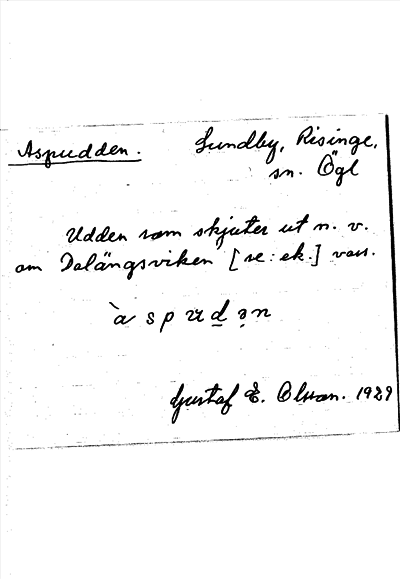 Aspudden. Lundby, Risinge,
sn. Ögl
Udden som skjuter ut n. v.
om Dalängsviken [se: ek.]
àspudən
Gustaf E. Olsson. 1929